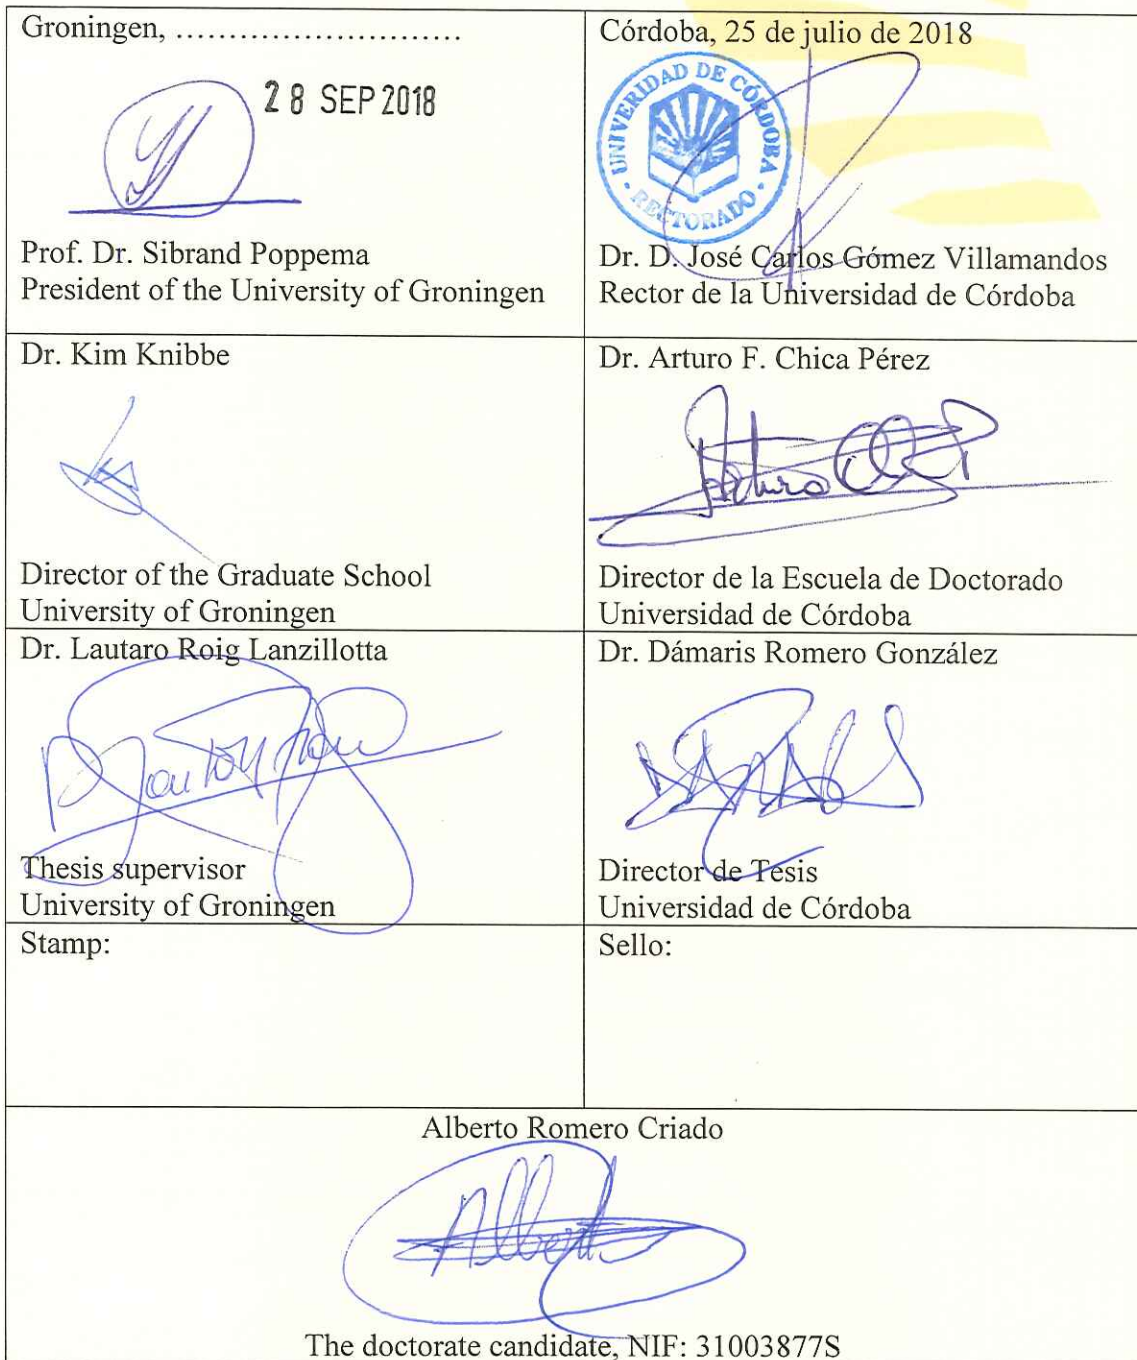 Groningen, ………………………
28 SEP 2018
Prof. Dr. Sibrand Poppema
President of the University of Groningen
Córdoba, 25 de julio de 2018
UNIVERIDAD DE CÓRDOBA
· RECTORADO ·
Dr. D. José Carlos Gómez Villamandos
Rector de la Universidad de Córdoba
Dr. Kim Knibbe
Director of the Graduate School
University of Groningen
Dr. Arturo F. Chica Pérez
Arturo
Director de la Escuela de Doctorado
Universidad de Córdoba
Dr. Lautaro Roig Lanzillotta
Thesis supervisor
University of Groningen
Dr. Dámaris Romero González
Director de Tesis
Universidad de Córdoba
Stamp:
Sello:
Alberto Romero Criado
Alberto
The doctorate candidate, NIF: 31003877S